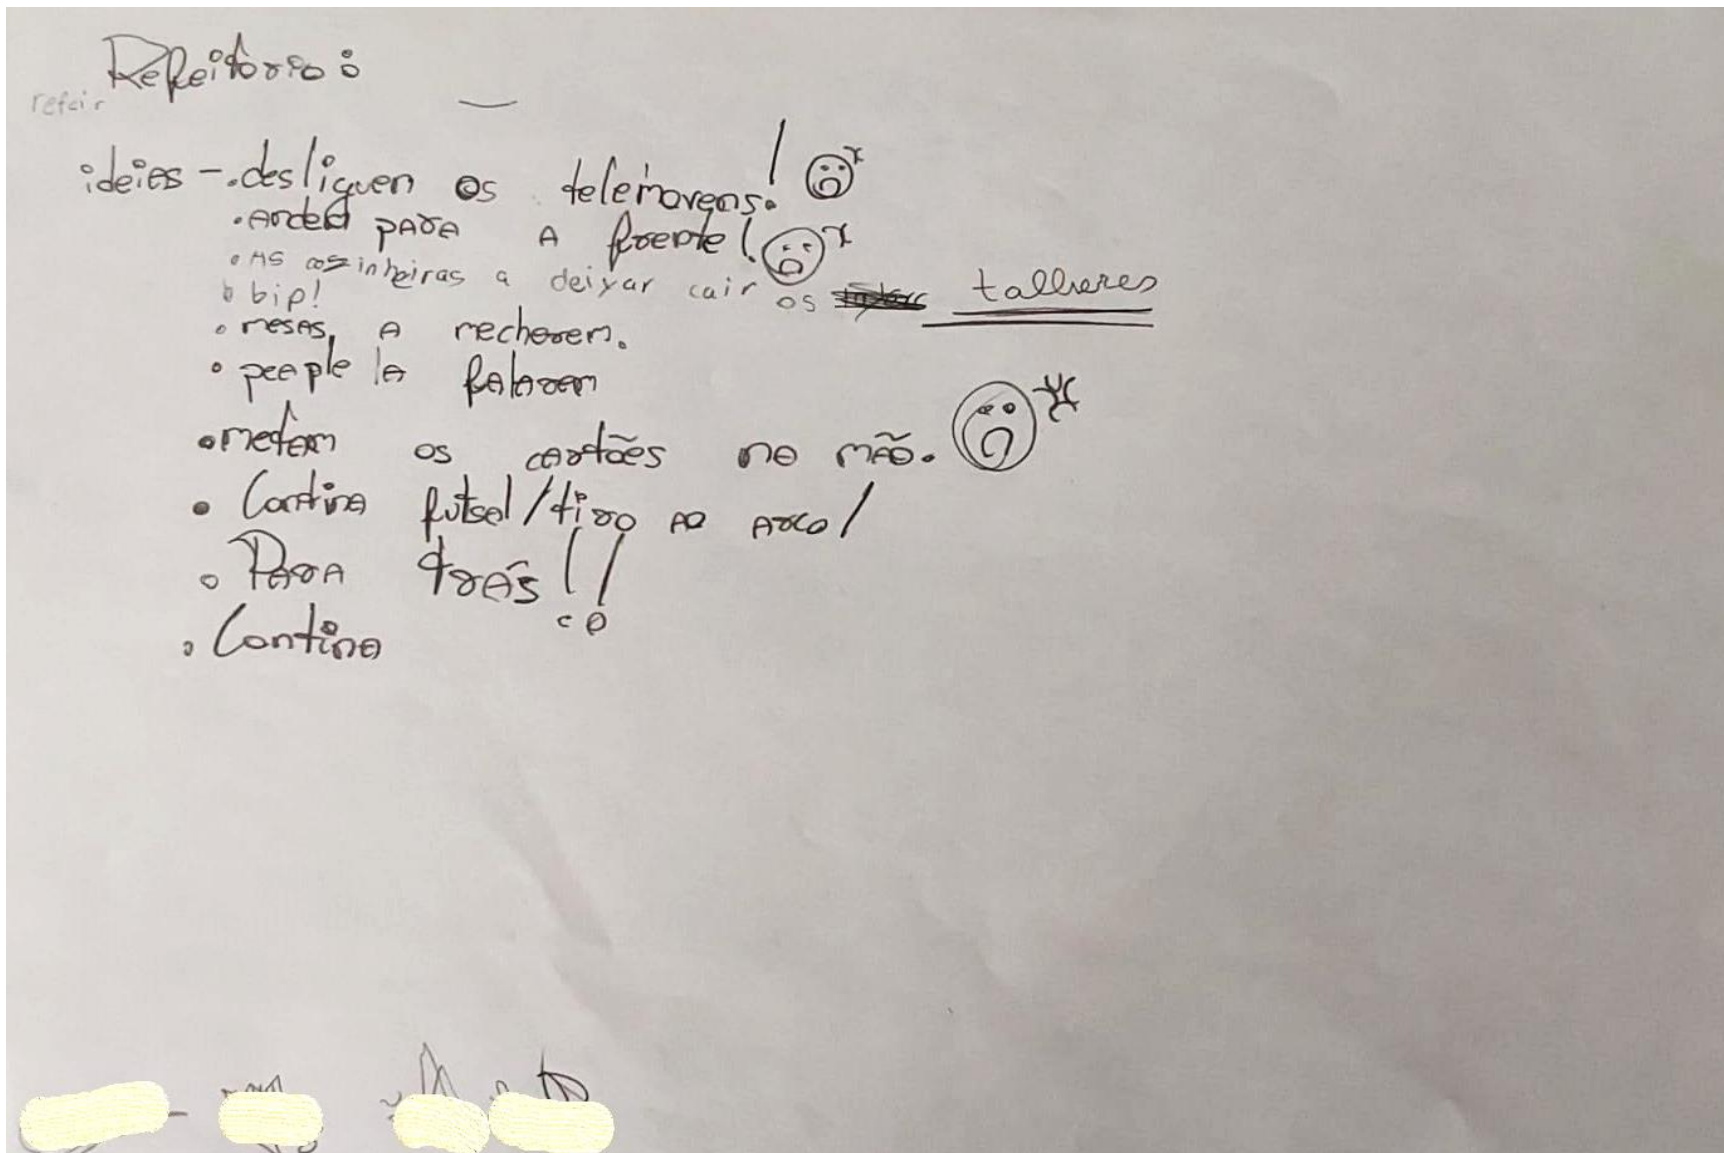 Refeitório:
refeir
ideies - . desliguen os telemovens!
. Andem para A frente!
. As cozinheiras a deixar cair os talheres
bip!
. mesas, A mecherem.
. peeple A falarem
. metam os cartões na mão.
. Cantina futsal/tiro Ao Arco/
. Para trás!!
. Cantina